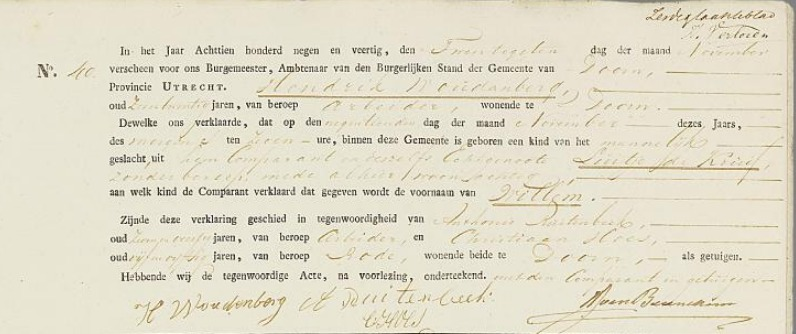 Zesde
In het Jaar Achttien honderd negen en veertig, den Twintigsten dag der maand November
N°. 40. verscheen voor ons Burgemeester, Ambtenaar van den Burgerlijken Stand der Gemeente van Doorn,
Provincie UTRECHT. Hendrik Woudenberg,
oud jaren, van beroep Arbeider, wonende te Doorn.
Dewelke ons verklaarde, dat op den negentienden dag der maand November dezes Jaars,
des morgens ten zeven ure, binnen deze Gemeente is geboren een kind van het mannelijk
geslacht, uit hem Comparant en deszelfs Echtgenoote
zonder beroep, mede alhier woonachtig,
aan welk kind de Comparant verklaard dat gegeven wordt de voornaam van Willem.
Zijnde deze verklaring geschied in tegenwoordigheid van Anthonie
oud jaren, van beroep Arbeider, en Christiaan
oud jaren, van beroep Bode, wonende beide te Doorn, als getuigen.
Hebbende wij de tegenwoordige Acte, na voorlezing, onderteekend. met den Comparant en getuigen
H Woudenberg A Ruitenbeek